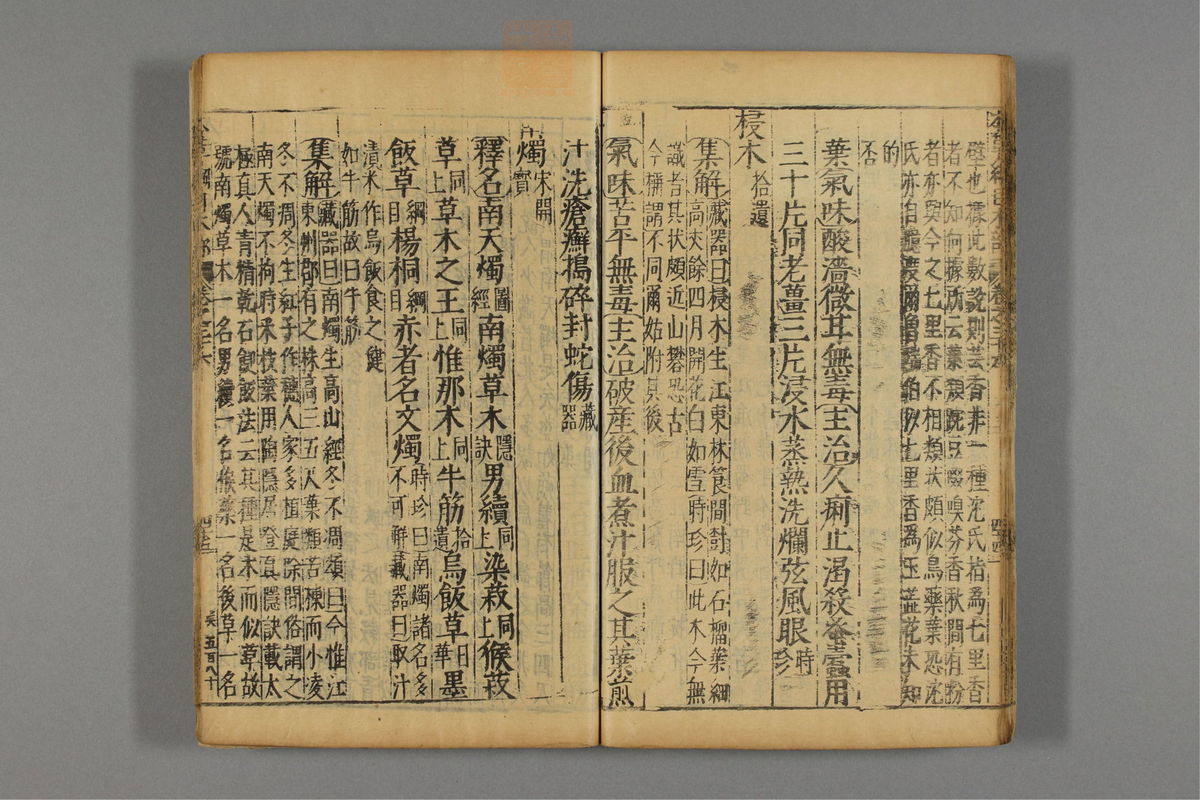 壁也據此數說則芸香非一種沈氏指爲七里香
者不知何據所云葉類豌豆啜嗅芬香秋間有粉
者亦與今之七里香不相類狀頗似烏藥葉恐沈
氏亦自臆度爾曾端伯以七里香爲玉蕊花未知
的否
葉氣味酸濇微甘無毒主治久痢止渴殺㽃蠹用
三十片同老薑三片浸水蒸熟洗爛弦風眼時珍
梫木拾遺
集解藏器曰梫木生江東林筤間樹如石榴葉細
高丈餘四月開花白如雪時珍曰此木今無
識者其狀頗近山礬恐古
今稱謂不同爾姑附其後
氣味苦平無毒主治破産後血煮汁服之其葉煎
汁洗瘡癬搗碎封蛇傷藏器
燭宋開寶
釋名南天燭圖經南燭草木隱訣男續同上染菽同上猴菽
草同上草木之王同上惟那木同上牛筋拾遺烏飯草日華墨
飯草綱目楊桐綱目赤者名文燭時珍曰南燭諸名多
不可解藏器曰取汁
漬米作烏飯食之健
如牛筋故曰牛筋
集解藏器曰南燭生高山經冬不凋頌曰今惟江
東州郡有之株高三五尺葉類苦楝而小凌
冬不凋冬生紅子作穗人家多植庭除間俗謂之
南天燭不拘時采枝葉用陶隱居登真隱訣載太
極真人青精乾石䭀飯法云其種是木而似草故
號南燭草木一名男續一名猴藥一名後草一名
四十三
吳五百八十